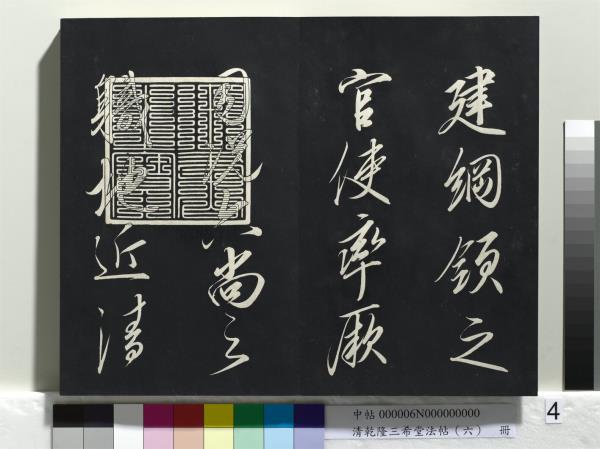 建綱領之
官使率厥
司況六尚之
職地近清
中帖 000006N000000000
清乾隆三希堂法帖（六） 冊
4